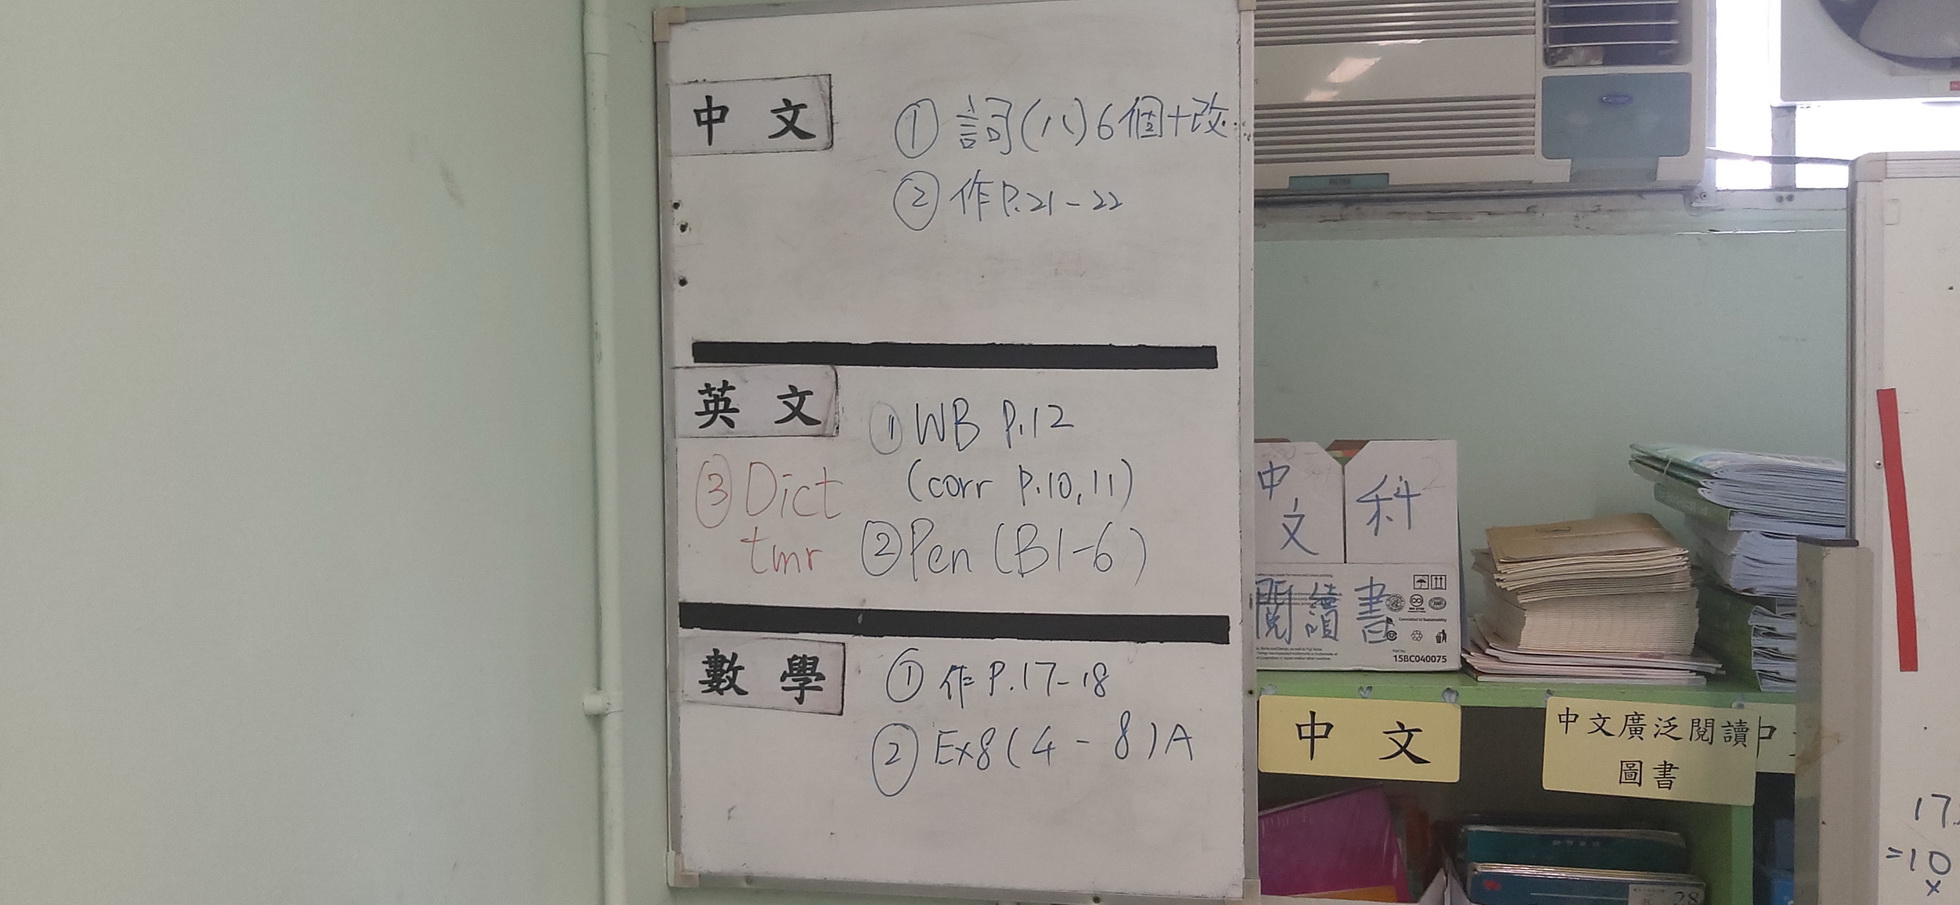 中文
① 詞(八)6個+改
② 作P.21-22
英文
① WB P.12
(corr P.10,11)
② Pen (B1-6)
③ Dict
tmr
數學
① 作P.17-18
② Ex8(4-8)A
中文
科
閱讀書
15BC040075
中文
中文廣泛閱讀
圖書
中
17
=10
x
28